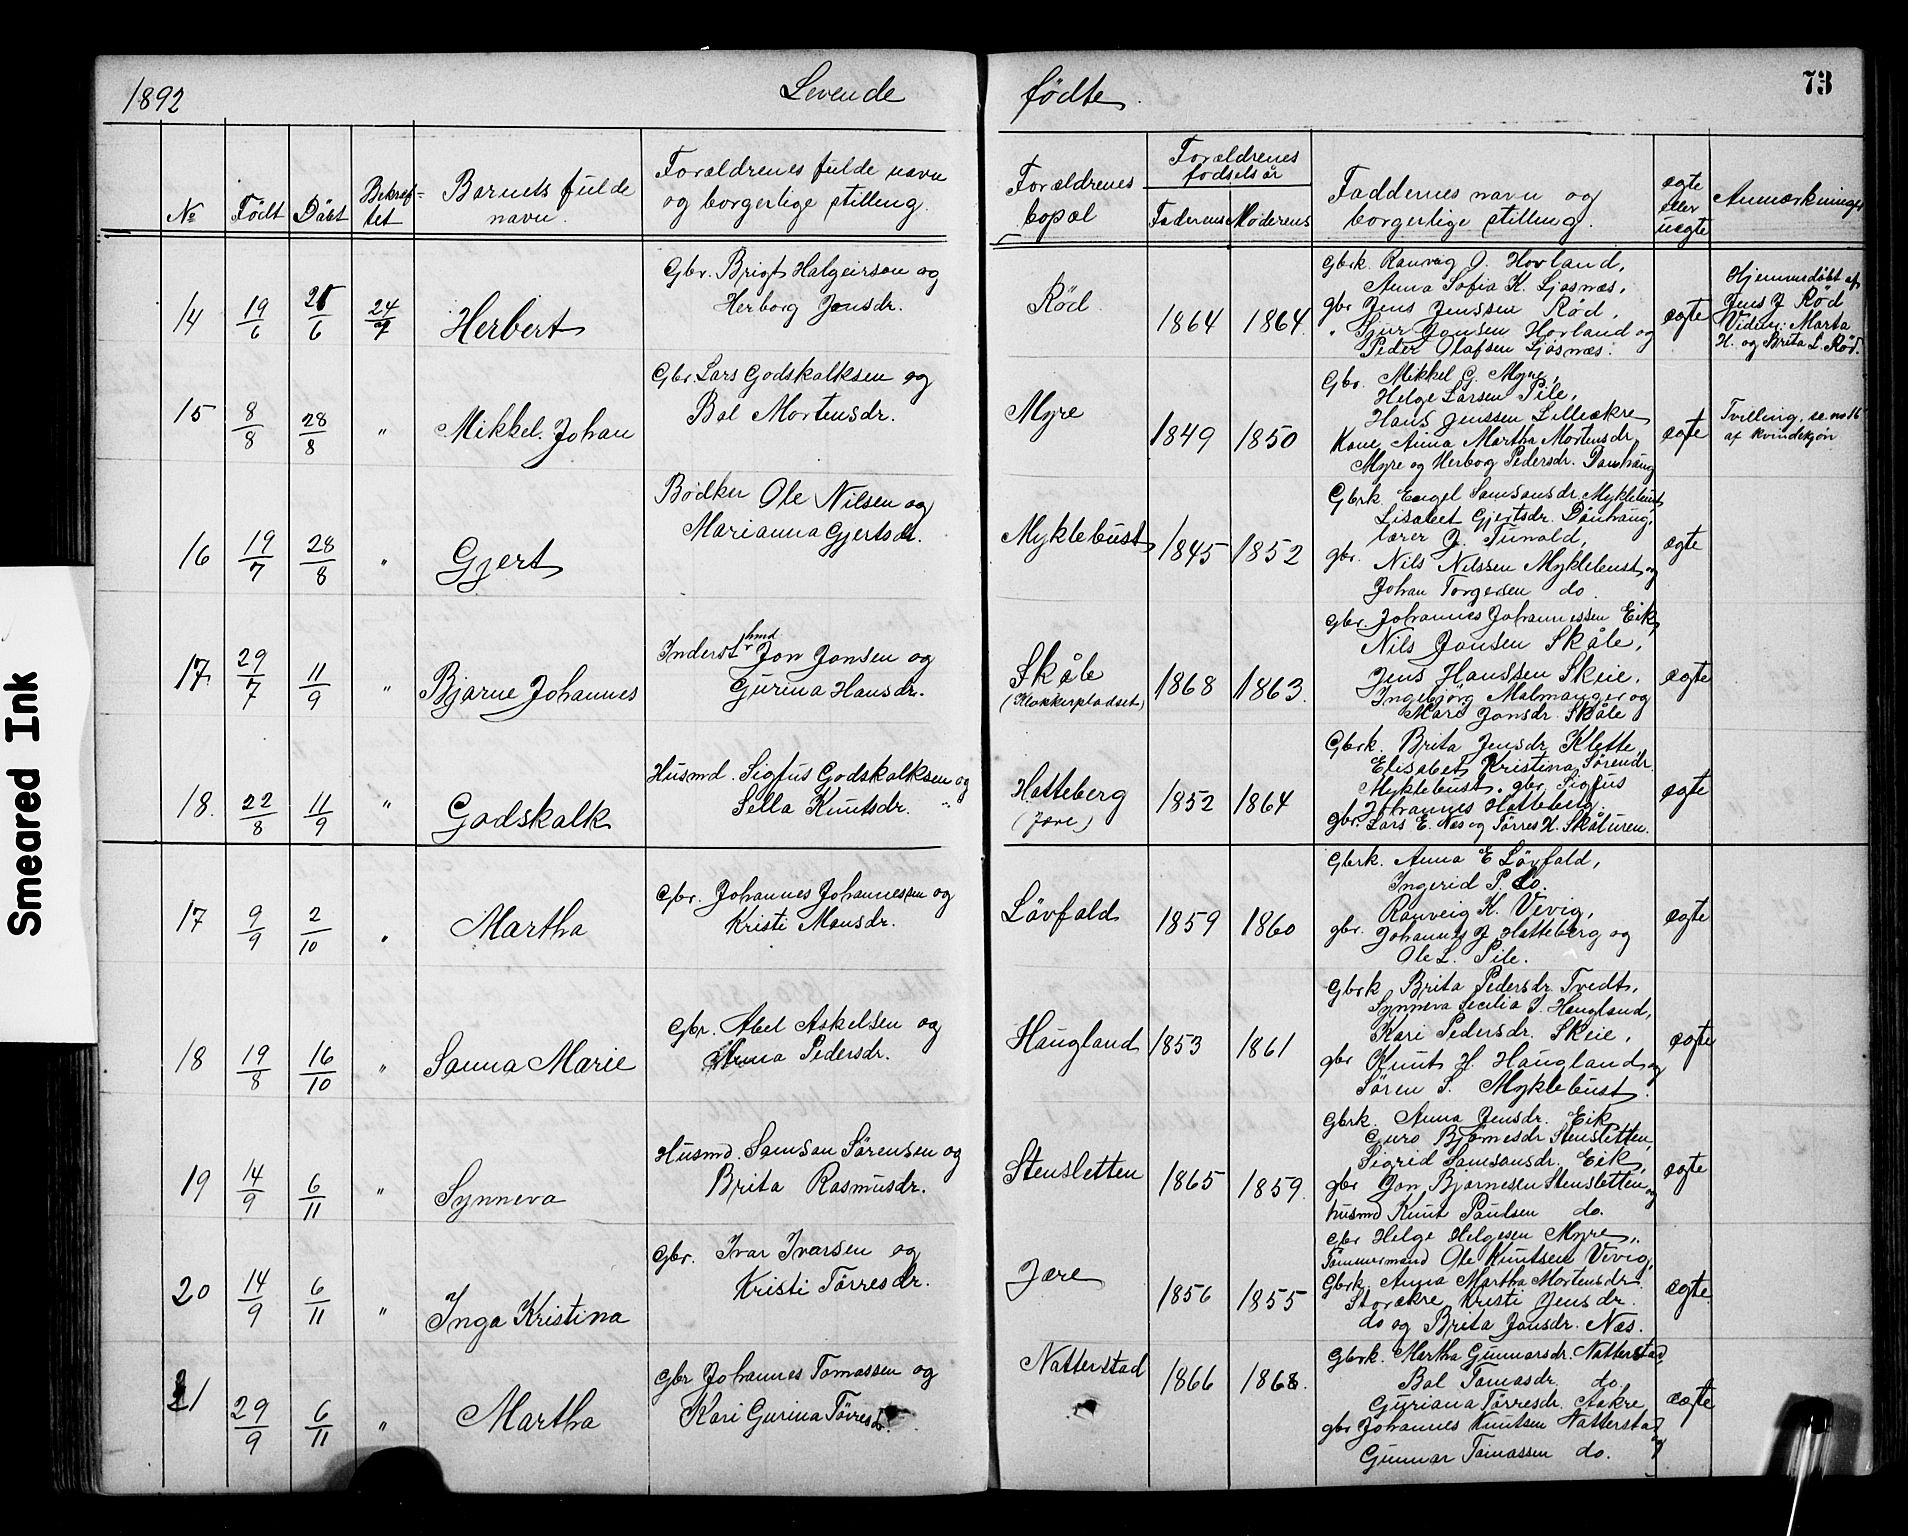 1892 Levende fødte. 73
No Født Døbt Bekræf-tet Barnets fulde navn. Forældrenes fulde navn og borgerlige stilling. Forældrenes bopæl Forældrenes fødselsår Faderens Moderens Faddernes navn og borgerlige stilling. ægte eller uægte Anmærkninger
14 19/6 25/6 24/7 Herbert
Gbr. Brigt Halgeirson og
Herborg Jonsdr.
Rød 1864 1864.
Gbrk. Ranveig J. Hovland,
Anna Sofia K. Ljosnæs,
gbr Jens Jenssen Rød,
" Sjur Jonsen Hovland og
Peder Olafsen Ljosnæs.
ægte
Hjemmedøbt af
Jens J Rød
Vidny: Marta
H. og Brita L. Rød.
15 8/8 28/8 " Mikkel. Johan
Gbr. Lars Godskalksen og
Bol Mortensdr.
Myre 1849 1850
Gbr. Mikkel G. Myre,
Helge Larsen Pile,
Hans Jenssen Lilleækre
Kone Anna Martha Mortensdr.
Myre og Herbog Pedersdr. Dønhaug
ægte
Tvilling, se no 16
af kvindekjøn
16 19/7 28/8 " Gjert
Bødker Ole Nilsen og
Marianna Gjertsd.
Myklebust 1845 1852
Gbrk. Engel Samsonsdr. Myklebust,
Lisabet Gjertsdr. Dønhaug,
lærer J. Tunold,
gbr. Nils Nilssen Myklebust og
Johan Torgersen do.
ægte
17. 29/7 11/9 " Bjarne Johannes
Inderst hmd Jon Jonsen og
Gurina Hansdr.
Skåle
(Klokkerpladset) 1868 1863.
gbr. Johannes Johannessen Eik,
Nils Jonsen Skåle,
Jens Hanssen Skeie,
Ingebjørg Malmanger og
Mari Jonsdr. Skåle
ægte
18. 22/8 11/9 " Godskalk
Husmd. Sigfus Godskalksen og
Sella Knutsdr. "
Hatteberg
(Jære) 1852 1864
Gbrk. Brita Jensdr Klette,
Elisabet Kristina Sørendr.
Myklebust. gbr. Sigfus
Johannes Hatteberg.
gbr. Lars E. Næs og Tørres H. Skåluren.
ægte
17 9/9 2/10 " Martha
Gbr. Johannes Johannessen og
Kristi Monsdr.
Løvfald 1859 1860
Gbrk. Anna E Løvfald,
Ingerid P. do.
Ranveig K. Vevig,
gbr. Johannes J. Hatteberg og
Ole L. Pile.
ægte
18 19/8 16/10 " Sanna Marie
Gbr. Abel Askelsen og
Anna Pedersdr.
Haugland 1853 1861
Gbrk Brita Pedersdr. Tvedt,
Synneva Secilia J. Haugland,
Kari Pedersdr. Skeie,
gbr Knut H. Haugland og
Søren S. Myklebust.
ægte
19 14/9 6/11 " Synneva
Husmd. Samson Sørensen og
Brita Rasmusdr.
Stensletten 1865 1859.
Gbrk. Anna Jensdr. Eik,
Guro Bjørnesdr Stensletten,
Sigrid Samsonsdr. Eik,
gbr Jon Bjørnesen Stensletten og
husmd Knut Paulsen do.
ægte
20 14/9 6/11 " Inga Kristina
Gbr. Ivar Ivarsen og
Kristi Tørresdr.
Jære 1856 1855
Gbr Helge Helgesen Myre,
Tømmermand Ole Knutsen Vevig,
Gbrk. Anna Martha Mortensdr.
Storækre Kristi Jensdr.
do og Brita Jonsdr. Næs.
ægte
21 29/9 6/11 " Martha
Gbr Johannes Tomassen og
Kari Gurina Tørresd.
Natterstad 1866 1868.
Gbrk. Martha Gunnarsdr. Natterstad,
Bol Tomasdr. do,
Guriana Tørresdr. Aakre,
gbr Johannes Knutsen Natterstad og
Gunnar Tomassen do.
ægte
Smeared Ink